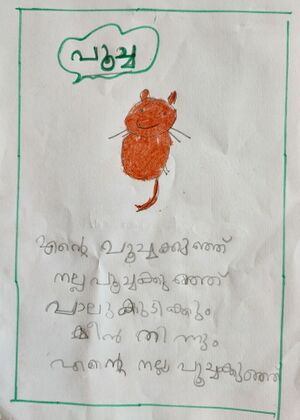 പൂച്ച
എന്റെ പൂച്ചക്കുഞ്ഞ്
നല്ല പൂച്ചക്കുഞ്ഞ്
പാലു കുടിക്കും
മീൻ തിന്നും
എന്റെ നല്ല പൂച്ചക്കുഞ്ഞ്